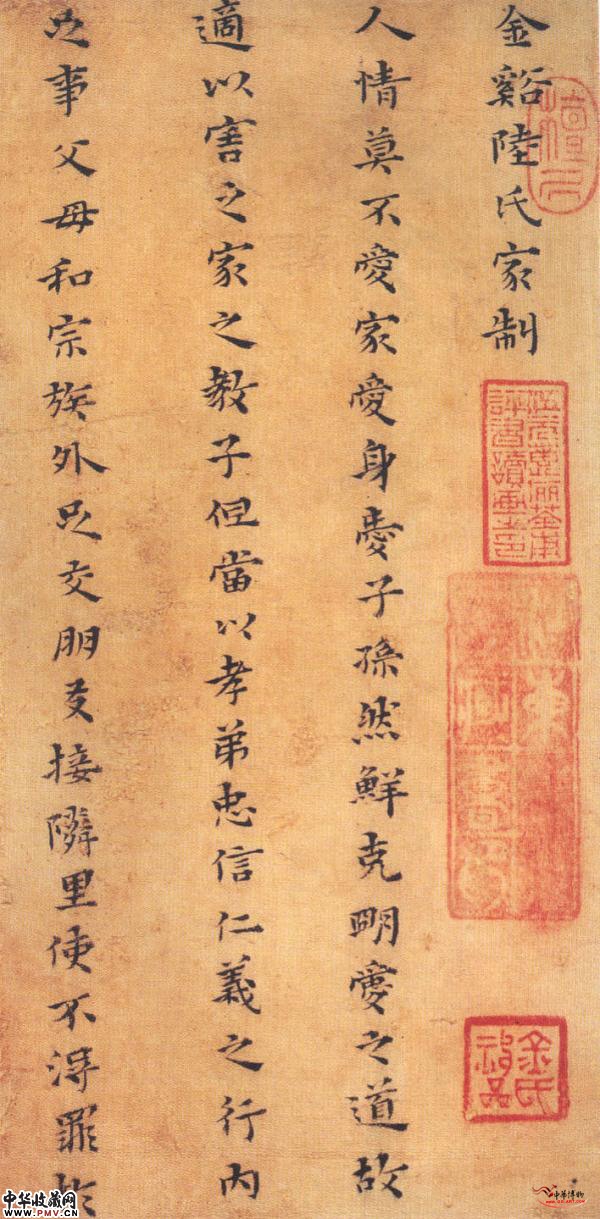 金谿陸氏家制
人情莫不愛家愛身愛子孫然鮮克明愛之道故
適以害之家之教子但當以孝弟忠信仁義之行內
足事父母和宗族外足交朋友接隣里使不得罪於
余氏
中华收藏网
WWW.PMV.CN